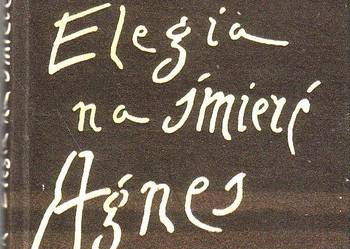 Elegia
na śmierć
Agnes